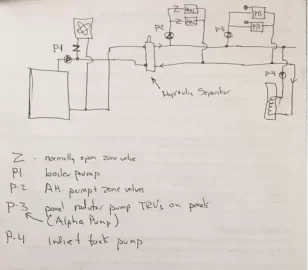 P-1
Z
P-2
Z AH
Z AH
P-3
PR
PR
P-4
Hydraulic Separator
Z - normally open zone valve
P1 boiler pump
P-2 AH pump + zone valves
P-3 panel radiator pump TRVs on panels
(Alpha Pump)
P-4 Indirect tank pump